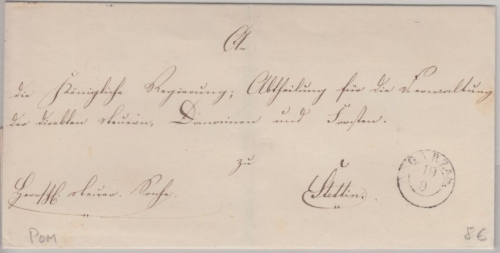 An
die Königliche Regierung; Abtheilung für die Verwaltung
der direkten Steuern, Domainen und Forsten.
zu
Stettin.
Herrschl. Steuer. Sache.
GARZ
19
9
Pom
86